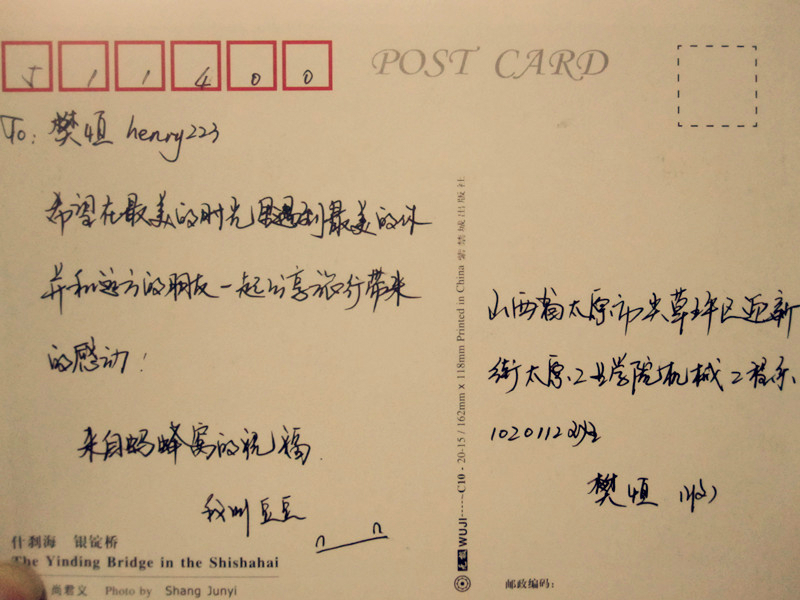 J11400
POST CARD
To: 樊恒 henry223
希望在最美的时光里遇到最美的你
并和远方的朋友一起分享旅行带来
的感动!
来自蚂蜂窝的祝福.
我叫豆豆
山西省太原市尖草坪区迎新
街太原工业学院机械工程系
1020112班
樊恒(收)
什刹海 银锭桥
The Yinding Bridge in the Shishahai
尚君义 Photo by Shang Junyi
WUJI------C10 - 20-15 / 162mm x 118mm Printed in China 紫禁城出版社
邮政编码: